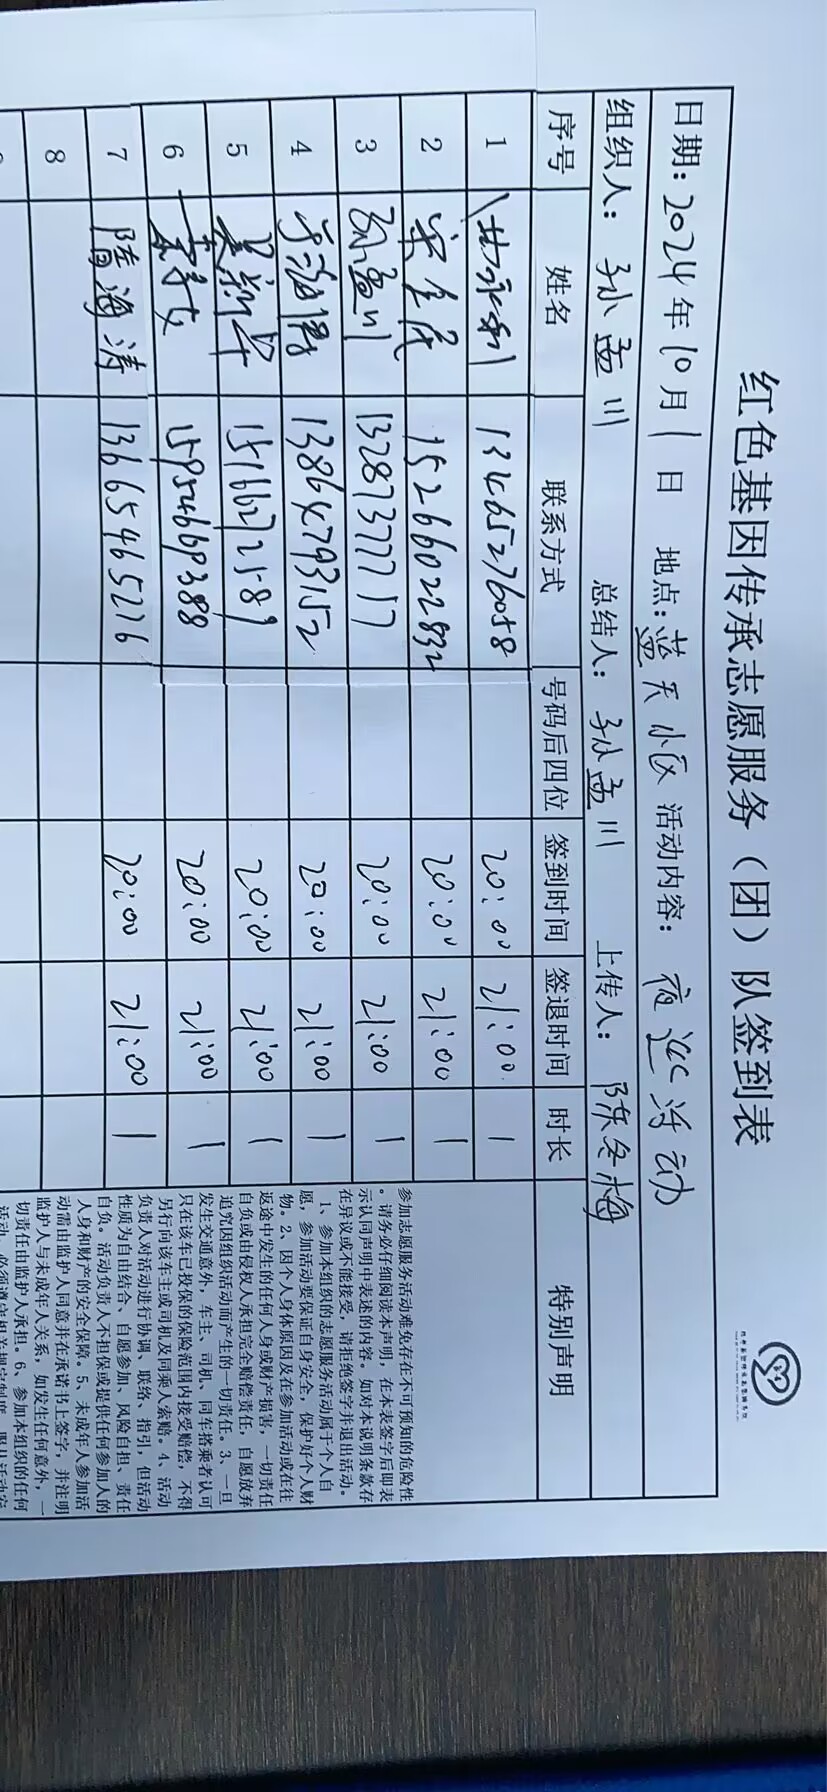 红色基因传承志愿服务（团）队签到表
日期：2024年10月1日 地点：蓝天小区 活动内容：夜巡活动
组织人：孙孟川 总结人：孙孟川 上传人：陈冬梅
序号 姓名 联系方式 号码后四位 签到时间 签退时间 时长 特别声明
1 13465276058 20:00 21:00 1
2 15266022832 20:00 21:00 1
3 孙孟川 13287377717 20:00 21:00 1
4 13864793152 20:00 21:00 1
5 15166272589 20:00 21:00 1
6 15954666388 20:00 21:00 1
7 隋海涛 13665465216 20:00 21:00 1
8
参加志愿服务活动难免存在不可预知的危险性
。请务必仔细阅读本声明，在本表签字后即表
示认同声明中表述的内容。如对本说明条款存
在异议或不能接受，请拒绝签字并退出活动。
1、参加本组织的志愿服务活动属于个人自
愿，参加活动要保证自身安全，保护好个人财
物。2、因个人身体原因及在参加活动或在往
返途中发生的任何人身或财产损害，一切责任
自负或由侵权人承担完全赔偿责任，自愿放弃
追究因组织活动而产生的一切责任。3、一旦
发生交通意外，车主、司机、同车搭乘者认可
只在该车已投保的保险范围内接受赔偿，不得
另行向该车主或司机及同乘人索赔。4、活动
负责人对活动进行协调、联络、指引，但活动
性质为自由结合、自愿参加、风险自担、责任
自负。活动负责人不担保或提供任何参加人的
人身和财产的安全保障。5、未成年人参加活
动需由监护人同意并在承诺书上签字，并注明
监护人与未成年人关系，如发生任何意外，一
切责任由监护人承担。6、参加本组织的任何